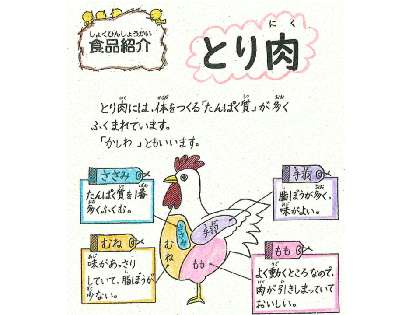 しょくひんしょうかい
食品紹介
にく
とり肉
とり肉には、体をつくる「たんぱく質」が多く
ふくまれています。
「かしわ」ともいいます。
ささみ
たんぱく質を1番
多くふくむ。
手羽
脂ぼうが多く、
味がよい。
ささみ
手羽
むね
もも
むね
味があっさり
していて、脂ぼうが
少ない。
もも
よく動くところなので、
肉が引きしまっていて
おいしい。